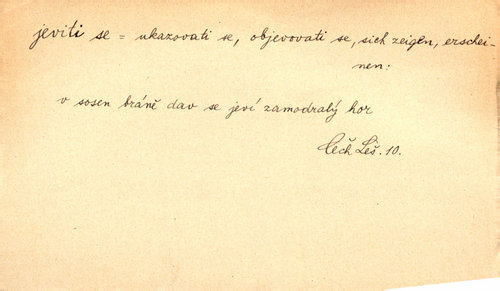 jeviti se = ukazovati se, objevovati se, sich zeigen, erschei-
nen:
v sosen bráně dav se jeví zamodralý hor
Čech Leš. 10.